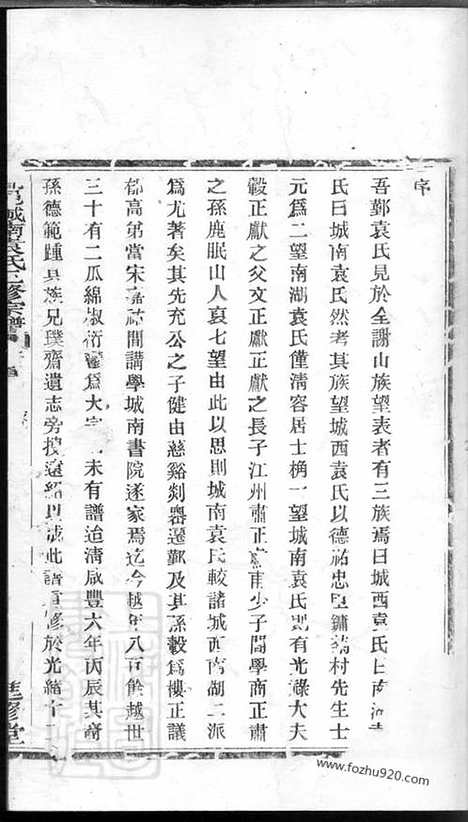 序
吾鄞袁氏見於全謝山族望表者有三族焉曰城西袁氏曰南湖袁
氏曰城南袁氏然考其族望城西袁氏以德祐忠臣鏞靖村先生士
元為二望南湖袁氏僅清容居士桷一望城南袁氏則有光祿大夫
轂正獻之父文正獻之長子江州肅正獻甫少子閩學商正肅
之孫鹿眠山人裒七望由此以思則城南袁氏較諸城西南湖二派
為尤著矣其先充公之子健由慈谿剡嶴遷鄞及其孫轂為樓正議
郁高弟當宋嘉祐間講學城南書院遂家焉迄今越年八百餘越世
三十有二瓜綿淑衍鬱為大宗未有譜迨清咸豐六年丙辰其裔
孫德範踵其族兄璞齋遺志旁搜遠紹以成此譜重修於光緒十二
城南袁氏三修宗譜
序
進修堂
www.fozhu920.com